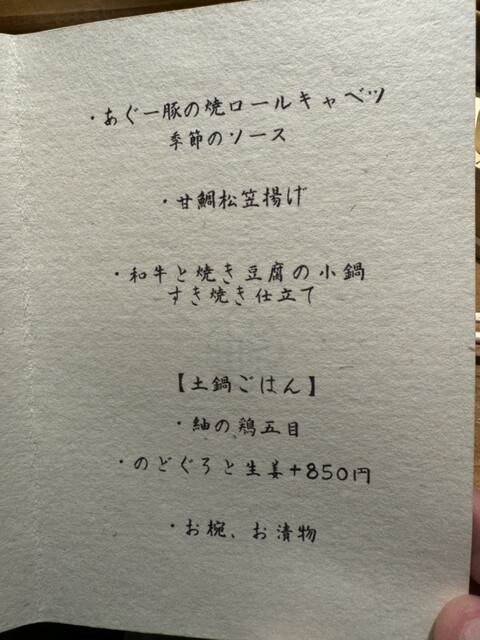 ・あぐー豚の焼ロールキャベツ
季節のソース
・甘鯛松笠揚げ
・和牛と焼き豆腐の小鍋
すき焼き仕立て
【土鍋ごはん】
・紬の、鶏五目
・のどぐろと生姜+850円
・お椀、お漬物